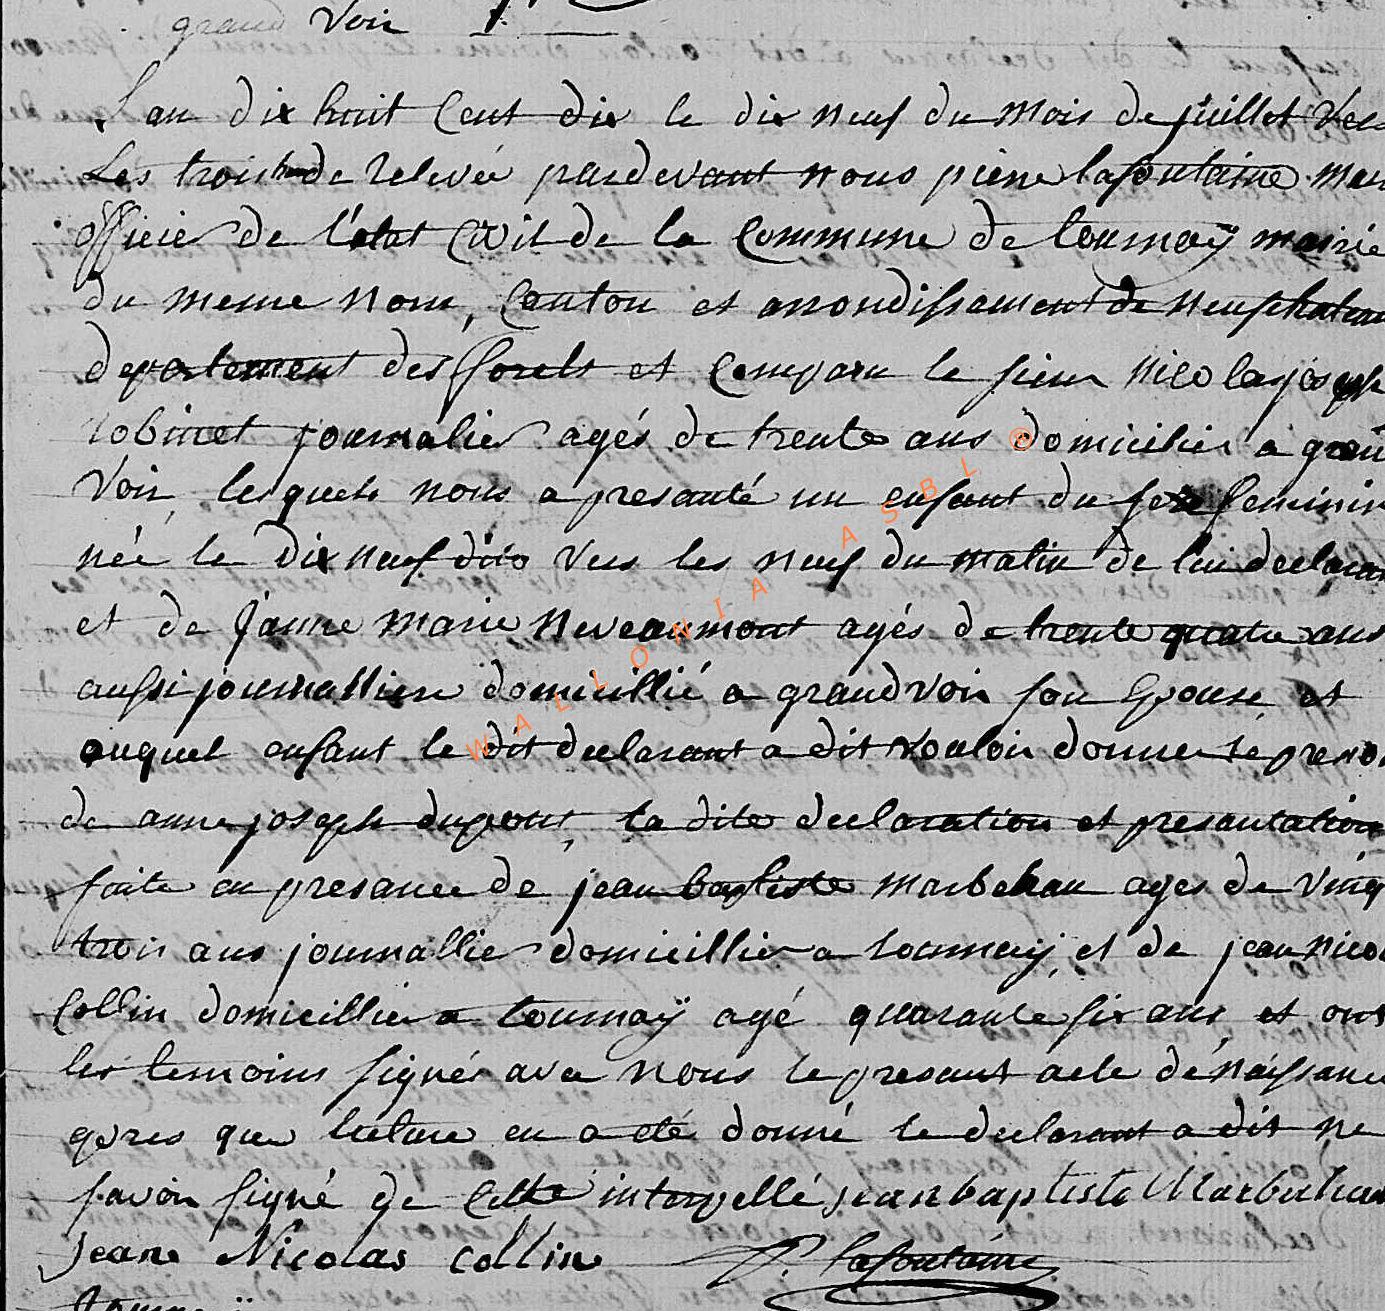 grand Voir
L'an dix huit Cent dix le dix neuf du mois de juillet Vers
Les trois heures de relevée pardevant nous pierre lafontaine maire
officier de l'état Civil de la Commune de tournaÿ mairie
du meme nom, Canton et arrondissement de neufchateau
departement des forets et Comparu le sieur nicolas joseph
robinet journalier agés de trente ans domicilier a grand
Voir lesquels nous a presanté un enfant du sexe feminin
née le dix neuf dito Vers les neuf du matin de lui declarant
et de Janne marie neveaumont agés de trente quatre ans
aussi journallier domicillié a grandvoir son Epouse et
auquel enfant le dit declarant a dit vouloir donner le prenom
de anne joseph dupont, la dite declaration et presantation
faite en presance de jean baptiste marbehan ages de vingt
trois ans journallier domicillier a tournaÿ, et de jean nicolas
Collin domicillier a tournaÿ agé quarante six ans, et ont
les temoins signés avec nous le presant acte dénaissance
apres que lecture en a eté donné le declarant a dit ne
savoir signé de Cette interpellé jean baptiste Marbehan
Jeane Nicolas collin P. lafontaine
WALLONIA ASBL ©